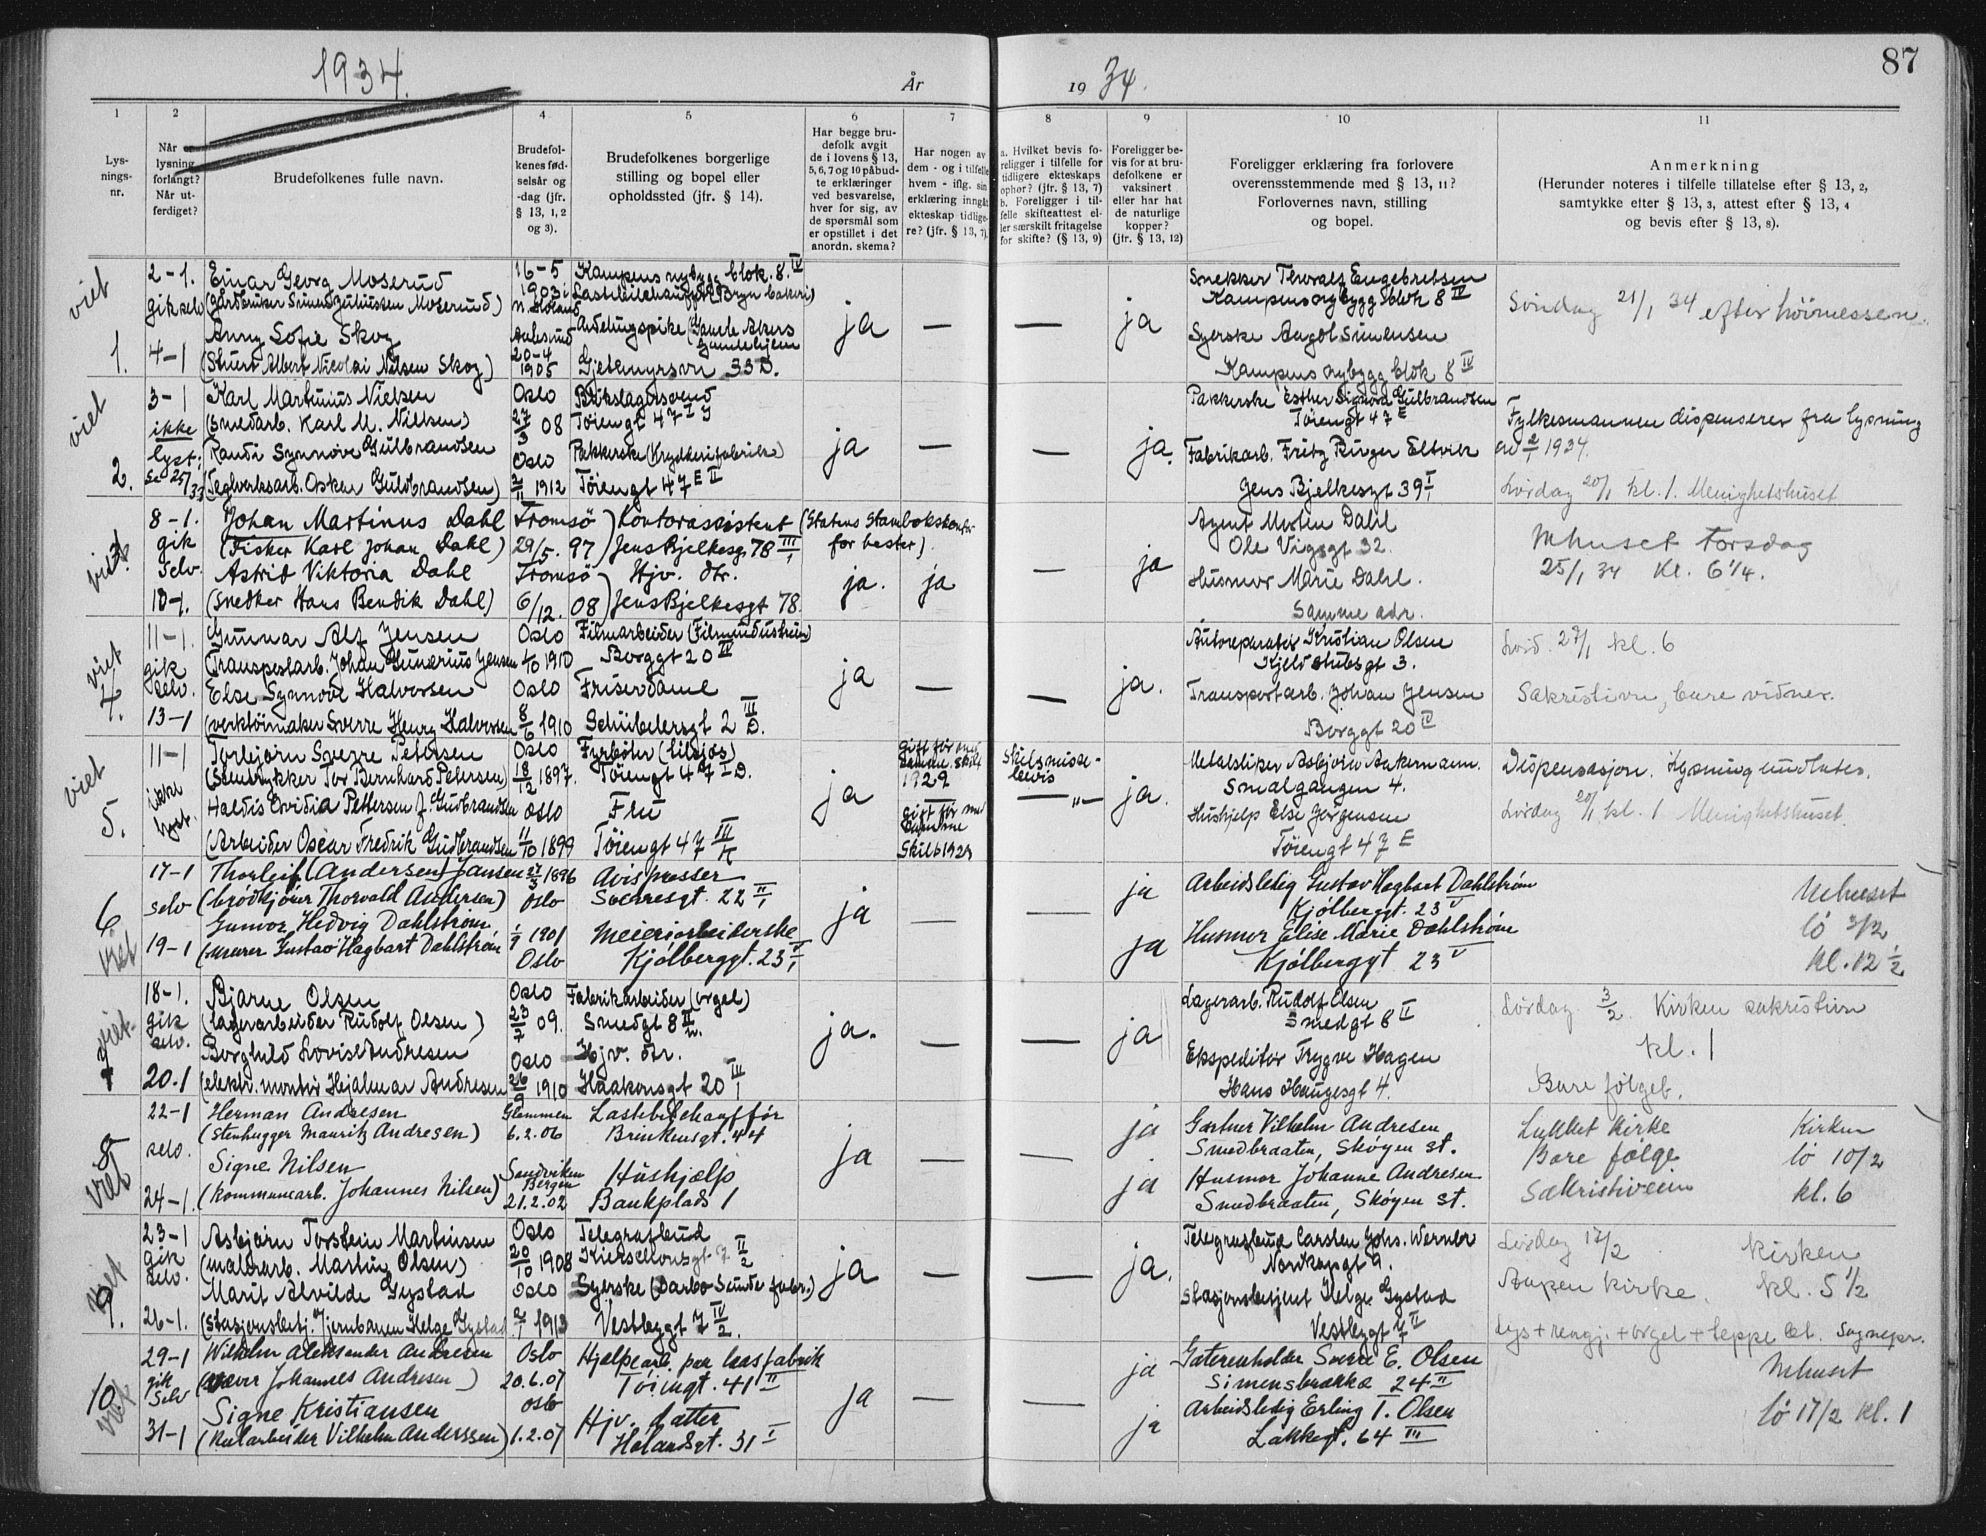 1934.
År
19 34.
87
1
2
4
5
6
7
8
9
10
11
Lys-
nings-
nr.
Når
lysning
forlangt?
Når ut-
ferdiget?
Brudefolkenes fulle navn.
Brudefol-
kenes fød-
selsår og
-dag (jfr.
§ 13, 1, 2
og 3).
Brudefolkenes borgerlige
stilling og bopel eller
opholdssted (jfr. § 14).
Har begge bru-
defolk avgit
de i lovens § 13,
5, 6, 7 og 10 påbud-
te erklæringer
ved besvarelse,
hver for sig, av
de spørsmål som
er opstillet i det
anordn. skema?
Har nogen av
dem - og i tilfelle
hvem - iflg. sin
erklæring inngåt
ekteskap tidlige-
re? (jfr. § 13, 7).
a. Hvilket bevis fo-
religger i tilfelle for
tidligere ekteskaps
ophør? (jfr. § 13, 7)
b. Foreligger i til-
felle skifteattest el-
ler særskilt fritagelse
for skifte? (§ 13, 9)
Foreligger be-
vis for at bru-
defolkene er
vaksinert
eller har hat
de naturlige
kopper?
(jfr. § 13, 12)
Foreligger erklæring fra forlovere
overensstemmende med § 13, 11?
Forlovernes navn, stilling
og bopel.
Anmerkning
(Herunder noteres i tilfelle tillatelse efter § 13, 2,
samtykke efter § 13, 3, attest efter § 13, 4
og bevis efter § 13, 8).
viet
1.
2-1.
gik selv
4-1
Einar Georg Moserud
(Gårdbruker Simen Juliussen Moserud)
Anny Sofie Skog
(Stuert Albert Nicolai Nilsen Skog)
16-5
1903 i
N. Høland
Aalesund
20-4
1905
Kampens nybygg blok. 8. IV
Lastebilchauffør (Bryn bakeri)
Avdelingspike (Gamle Akers
Gamlehjem
Gjetemyrsvn 33 D.
ja
—
—
ja
Snekker Thorvald Engebretsen
Kampens nybygg blok 8 IV
Syerske Aagot Simensen
Kampens nybygg blok 8 IV
Søndag 21/1 34 efter høimessen.
viet
2.
3-1
ikke
lyst:
Se 25/33
Karl Martinius Nielsen
(Smedarb. Karl M. Nielsen)
Randi Synnøve Gulbrandsen
(Teglverksarb. Oskar Guldbrandsen)
Oslo
27/3 08
Oslo
2/11 1912
Blikslagersvend
Tøiengt 47 I J
Pakkerske (Krydderifabrikk)
Tøiengt 47 E II
ja
—
—
ja.
Pakkerske Esther Sigurd Gulbrandsen
Tøiengt 47 E
Fabrikarb. Fritz Ringer Eltvik
Jens Bjelkesgt 39 I
Fylkesmannen dispenserer fra lysning
av 2/1 1934.
Lørdag 20/1 kl. 1. Menighetshuset
viet
3.
8-1.
gik
selv.
10-1.
Johan Martinus Dahl
(Fisker Karl Johan Dahl)
Astrid Viktoria Dahl
(Snedker Hans Bendik Dahl)
Tromsö
29/5. 97
Tromsö
6/12. 08
Kontorassistent (Statens Stambokskontor
Jens Bjelkesg. 78 III for hester).
Hjv. dtr.
Jens Bjelkesgt 78.
ja.
ja
—
ja
Agent Morten Dahl
Ole Vigsgt 32.
Husmor Marie Dahl.
Samme adr.
Mhuset Torsdag
25/1 34 Kl. 6 1/4.
viet
4.
11-1.
gik
selv.
13-1
Gunnar Alf Jensen
(Transportarb. Johan Gunerius Jensen
Else Synnøve Halvorsen
(verktöimaker Sverre Henry Halvorsen
Oslo
4/10 1910
Oslo
8/6 1910
Filmarbeider (Filmindustrien)
Borggt 20 IV
Friserdame
Schübelersgt 2 III D.
ja
—
—
ja.
Autoreparatør Kristian Olsen
Kjeld Stubsgt 3.
Transportarb. Johan Jensen
Borggt 20 IV
Lørd. 27/1 kl. 6
Sakristiet, bare vidner.
viet
5.
11-1
ikke
lyst.
Torbjørn Sverre Petersen
(Stentrykker Tor Bernhard Petersen)
Haldis Ovidia Pettersen f. Gudbrandsen
(Arbeider Oscar Fredrik Gudbrandsen
Oslo
18/12 1897.
Oslo
11/10 1899
Fyrbøter (tilsjøs)
Tøiengt 47 I D.
Fru
Tøiengt 47 III K
ja
gift før med
samme. Skilt
1929
gift før med
samme
Skilt 1929
Skilsmisse-
bevis
— " —
ja.
Metalsliper Asbjørn Ankermann.
Smalgangen 4.
Hushjelp Else Jørgensen
Tøiengt 47 E
Dispensasjon. Lysning undlates.
Lørdag 20/1 kl. 1 Menighetshuset.
6
viet
17-1
selv
19-1
Thorleif (Andersen) Jansen
(brødkjører Thorvald Andersen)
Gunvor Hedvig Dahlstrøm
(murer Gustav Hagbart Dahlstrøm
27/3 1896
Oslo
1/9 1901
Oslo
Avispresser
Sverresgt. 22 II
Meieriarbeiderske
Kjølberggt. 23 V
ja
—
—
ja
ja
Arbeidsledig Gustav Hagbart Dahlstrøm
Kjølberggt. 23 V
Husmor Elise Marie Dahlstrøm
Kjølberggt 23 V
Mhuset
lö 3/2
kl. 12 1/2
viet
7
18-1.
gik
selv.
20.1
Bjarne Olsen
(lagerarbeider Rudolf Olsen)
Borghild Lovise Andresen
(elektr. montör Hjalmar Andresen
Oslo
23/7 09.
Oslo
26/9 1910
Fabrikarbeider (orgel)
Smedgt 8 II
Hjv. dtr.
Haakonsgt 20 III
ja.
—
—
ja
Lagerarb. Rudolf Olsen
Smedgt 8 II
Ekspeditør Trygve Hagen
Hans Haugesgt 4.
Lørdag 3/2. Kirken sakristien
kl. 1
Bare følget.
8
viet
22-1
selv.
24-1.
Herman Andresen
(Stenhugger Mauritz Andresen)
Signe Nilsen
(Kommunearb. Johannes Nilsen)
Glemmen
6.2.06
Sandviken
Bergen
21.2.02
Lastebilchauffør
Brinkensgt. 44
Hushjælp
Bankplads 1
ja
—
—
ja
ja
Gartner Vilhelm Andresen
Smedbraaten, Skøyen st.
Husmor Johanne Andresen
Smedbraaten, Skøyen st.
Lukket kirke
Bare følge
Sakristiveien
Kirken
lö 10/2
kl. 6
viet
9.
23-1
gik
selv.
26-1.
Asbjørn Torstein Martinsen
(malerarb. Martin Olsen)
Marit Alvilde Gystad
(Stasjonsbetj. Jernbanen Helge Gystad
Oslo
20/10 1908
Oslo
2/1 1913
Telegrafbud
Kierschowsgt 7 II/2
Syerske
Vestbygt 7 IV/2.
ja
—
—
ja.
Telegrafbud Carsten Johs. Werner
Nordkapgt 9.
Stasjonsbetjent Helge Gystad
Vestbygt 7 II
Lørdag 17/2 Kirken
Aapen kirke. kl. 5 1/2
Lys + rengj. + orgel + teppe bet. Sognepr.
10
viet
29-1
gik
selv
31-1
Wilhelm Aleksander Andresen
(væver Johannes Andresen)
Signe Kristiansen
(Malarbeider Vilhelm Anderssen)
Oslo
20.6.07
Oslo
1.2.07
Hjælpearb. paa laasfabrik
Tøiengt. 41 II
Hjv. datter
Hølandsgt. 31 I
ja
—
—
ja
ja
Sverre E. Olsen
Simensbrække 24 II
Arbeidsledig Erling T. Olsen
Lakkegt. 64 III
Mhuset
lö 17/2 kl. 1